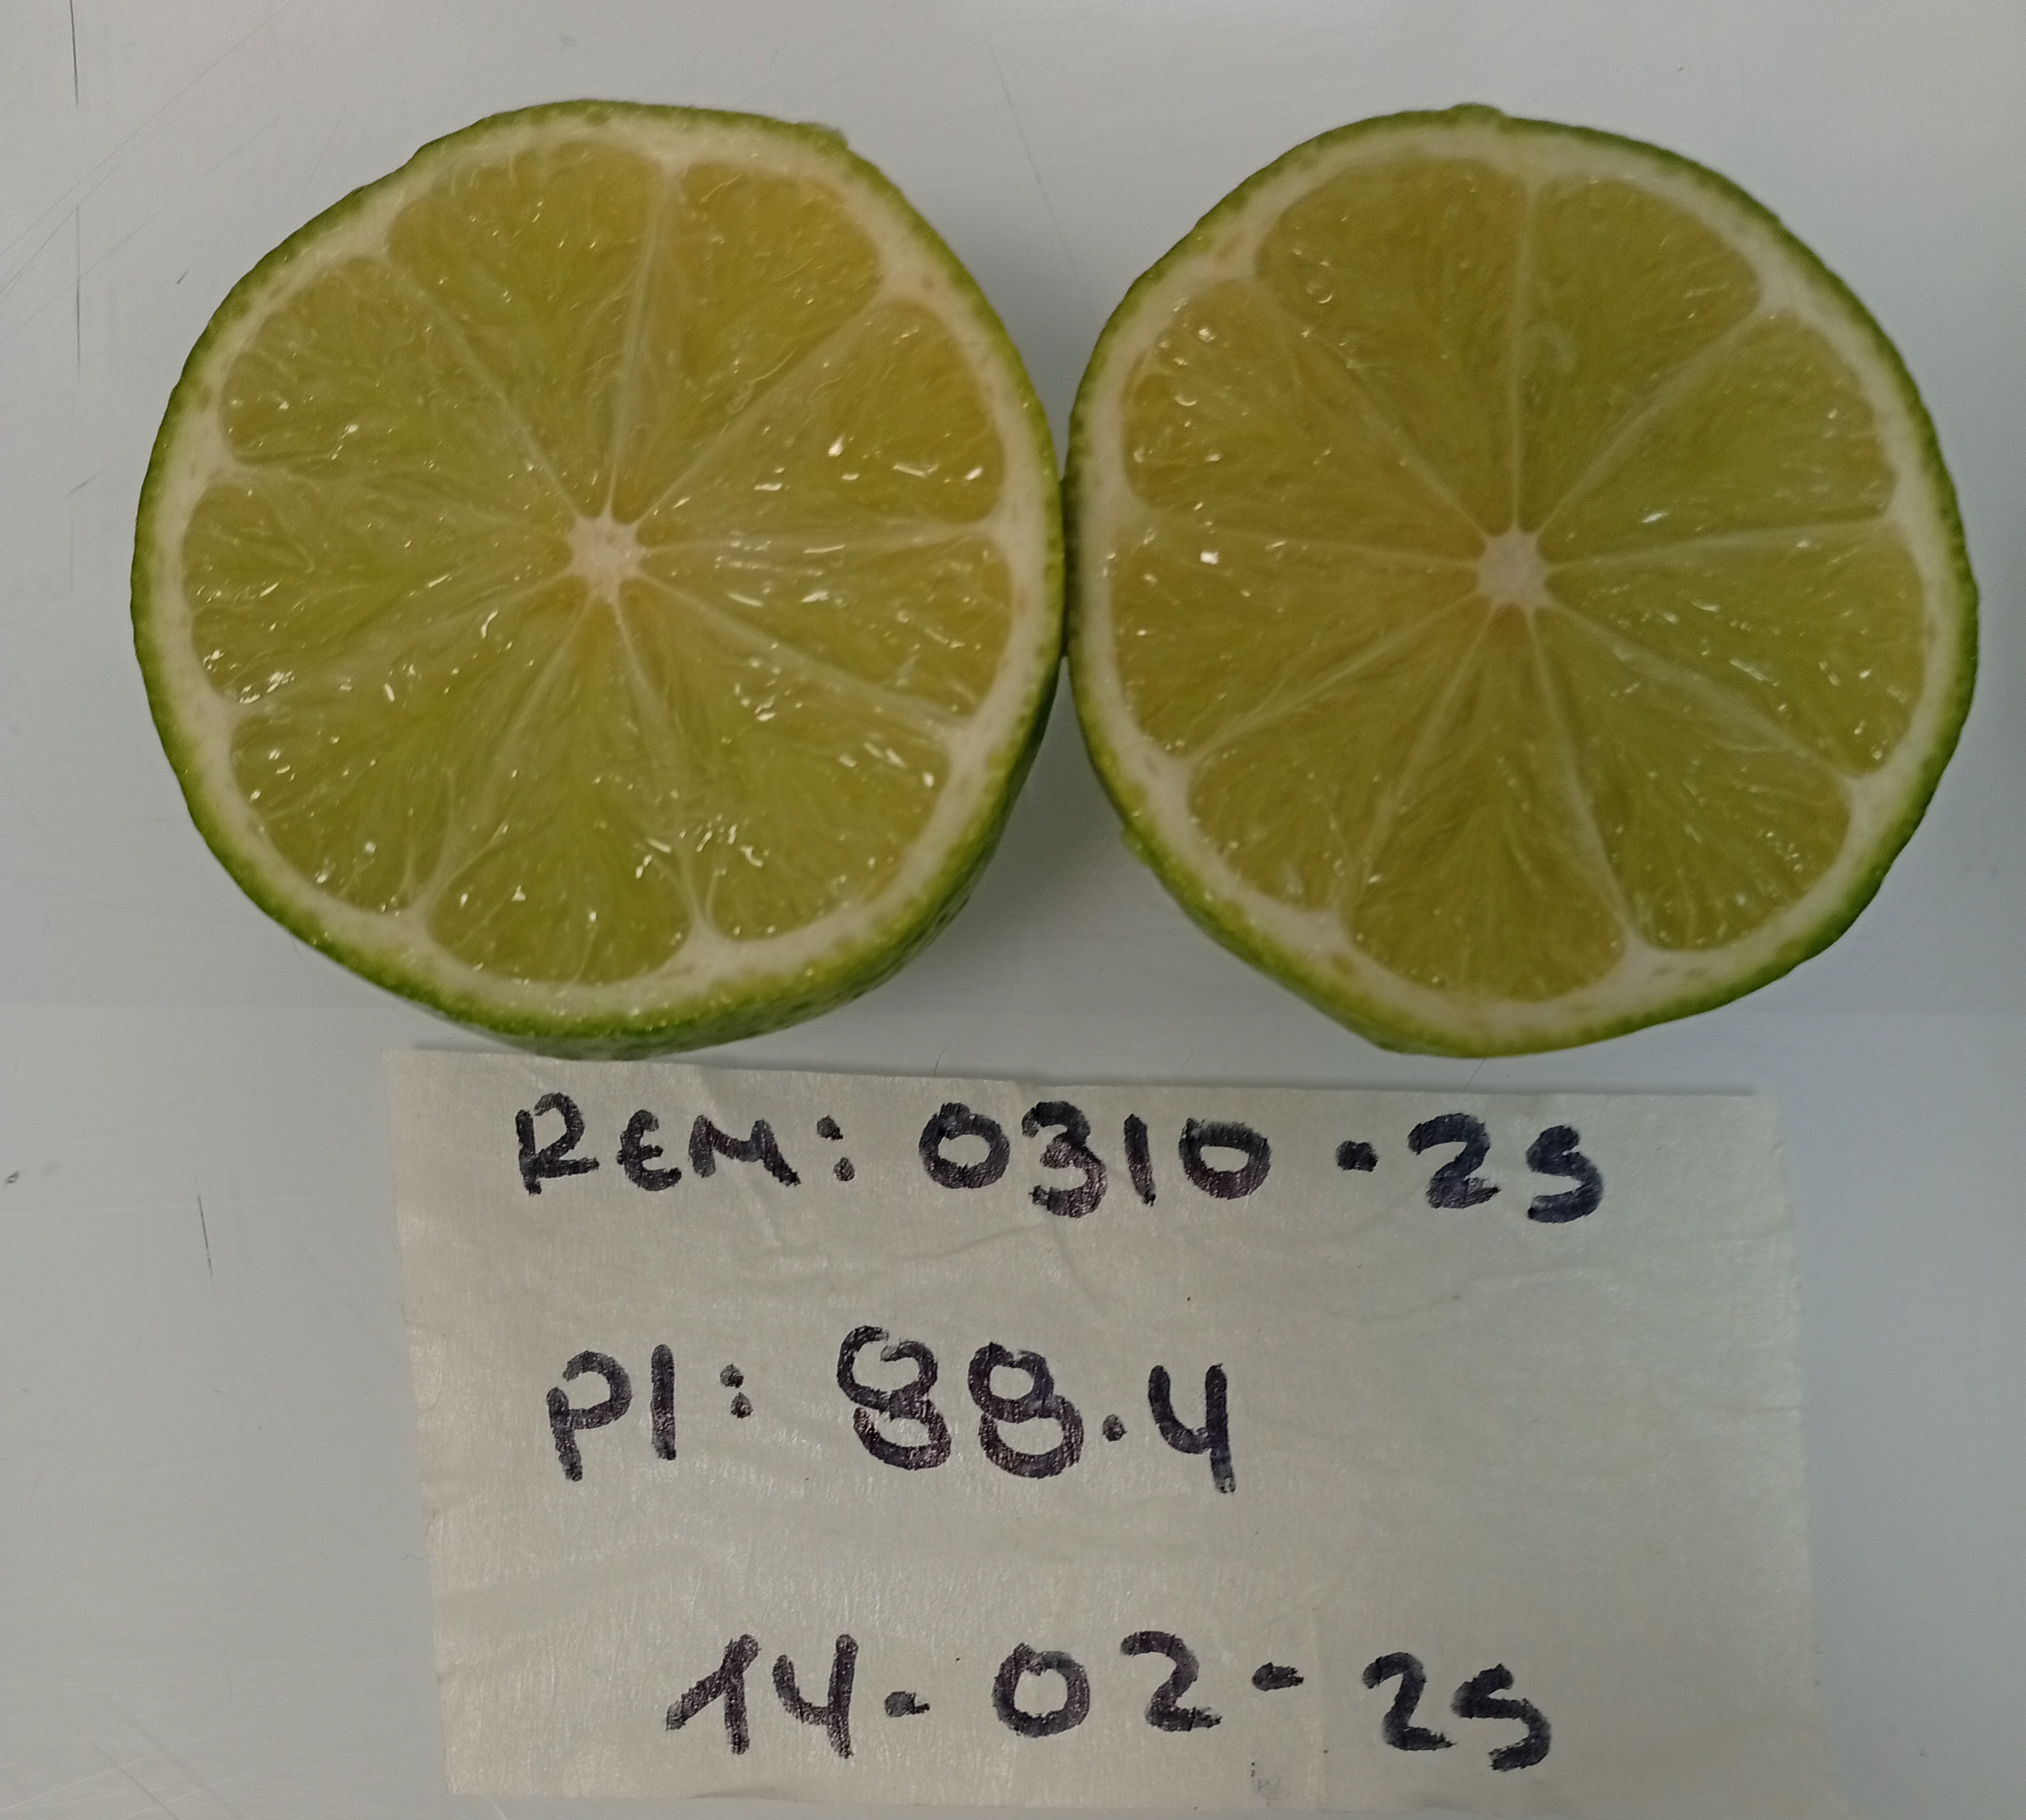 REM: 0310-25
PI: 88.4
14-02-25